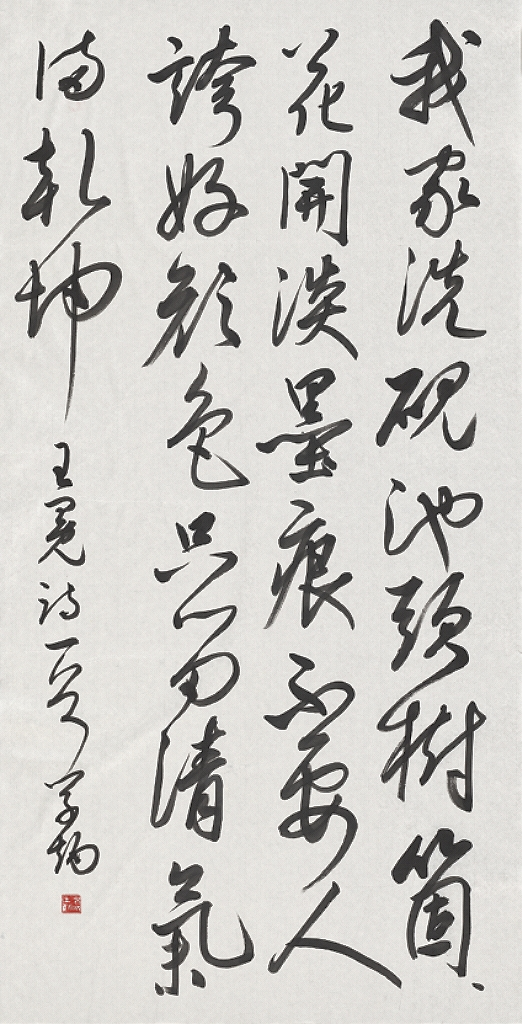 我家洗硯池頭樹箇、
花開淡墨痕不要人
誇好顏色只留清氣
滿乾坤
王冕詩一首